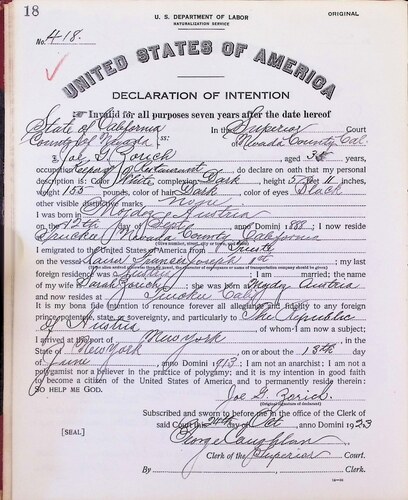 18
U. S. DEPARTMENT OF LABOR
NATURALIZATION SERVICE
ORIGINAL
No. 418.
UNITED STATES OF AMERICA
DECLARATION OF INTENTION
Invalid for all purposes seven years after the date hereof
State of California
County of Nevada ss: In the Superior Court
of Nevada County Cal.
I, Joe G. Zorich, aged 35 years,
occupation Restaurant, do declare on oath that my personal
description is: Color White, complexion Dark, height 5 feet inches,
weight 155 pounds, color of hair Dark, color of eyes Black
other visible distinctive marks None
I was born in Austria
on the 12th day of Sept, anno Domini 1888; I now reside
at Truckee Nevada County California
(Give number, street, city or town, and State.)
I emigrated to the United States of America from
on the vessel Joseph 1st; my last
foreign residence was Austria; I am married; the name
of my wife is Sarah Zorich; she was born at Austria
and now resides at Truckee Calif
It is my bona fide intention to renounce forever all allegiance and fidelity to any foreign
prince, potentate, state, or sovereignty, and particularly to The Republic
of Austria, of whom I am now a subject;
I arrived at the port of New York, in the
State of New York, on or about the 13th day
of June, anno Domini 1913; I am not an anarchist; I am not a
polygamist nor a believer in the practice of polygamy; and it is my intention in good faith
to become a citizen of the United States of America and to permanently reside therein:
SO HELP ME GOD.
Joe G. Zorich
(Original signature of declarant)
Subscribed and sworn to before me in the office of the Clerk of
said Court this 24th day of Oct, anno Domini 1923
[SEAL]
George Coughlan
Clerk of the Superior Court.
By , Clerk.